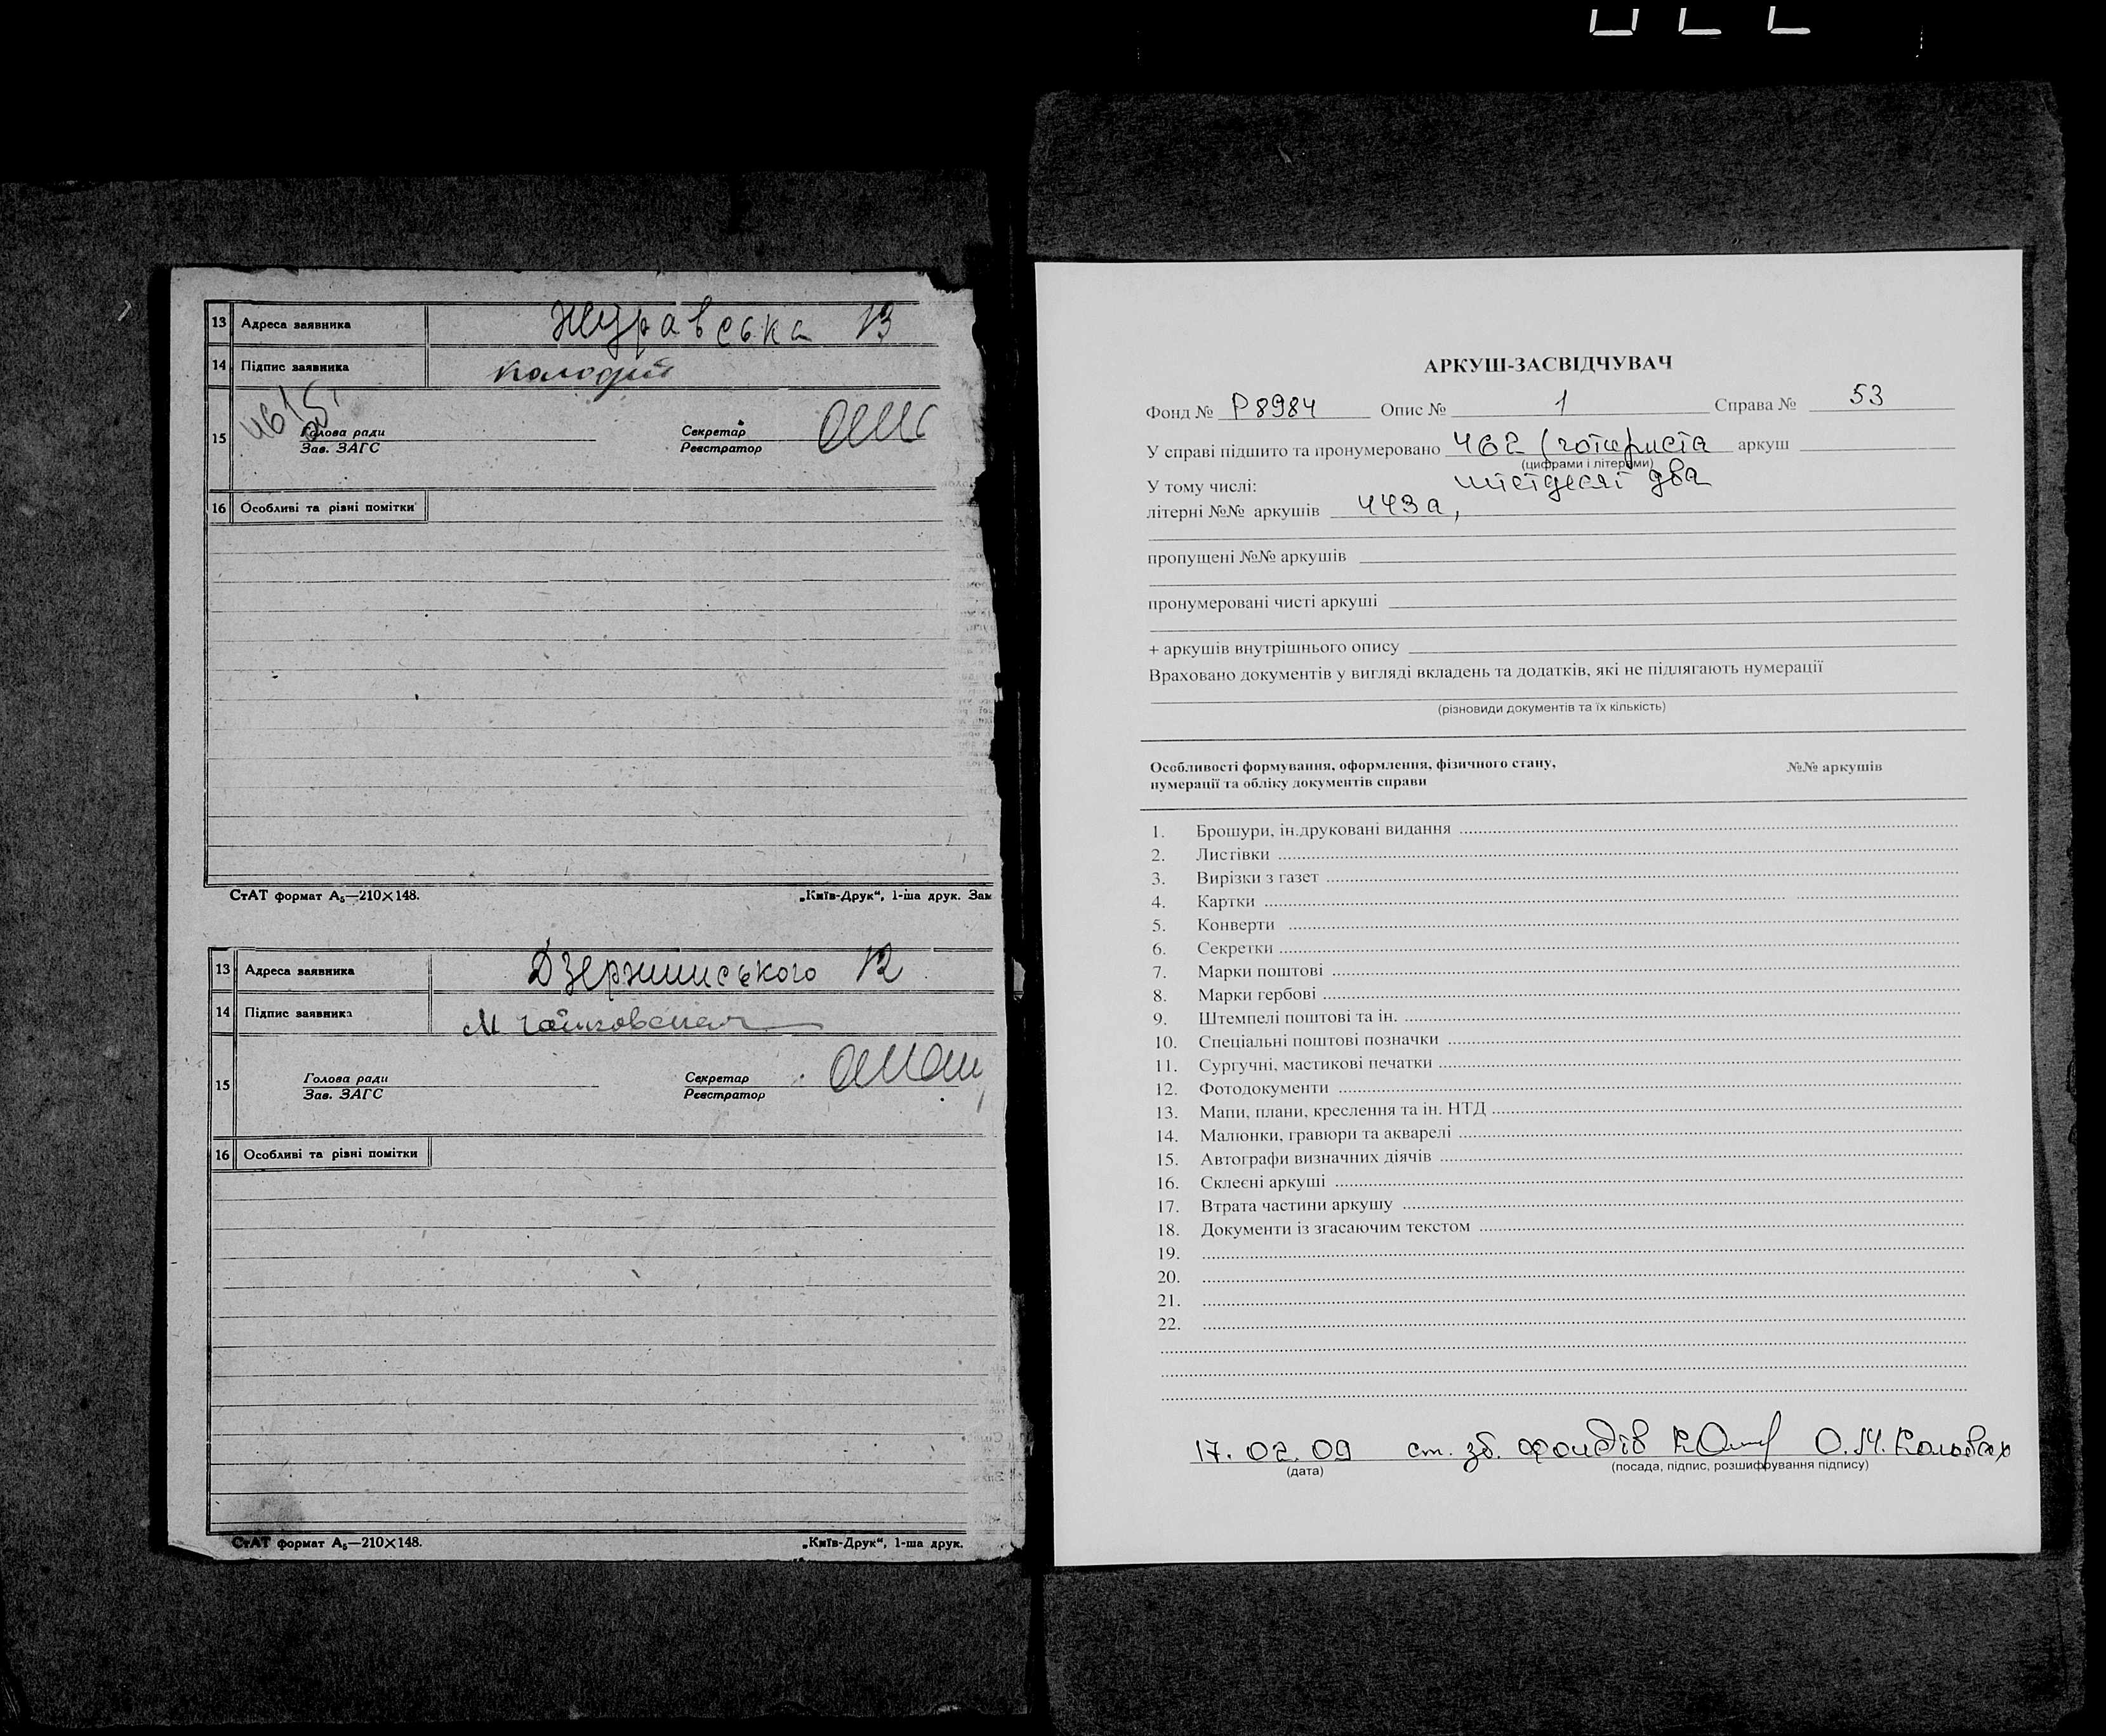 13 Адреса заявника Журавська 13
14 Підпис заявника Колодій
15 Голова ради Секретар
Зав. ЗАГС Реєстратор
16 Особливі та різні помітки
СтАТ формат А₅—210×148. „Київ-Друк“, 1-ша друк. Зам
13 Адреса заявника Дзержинського 12
14 Підпис заявника М
15 Голова ради Секретар
Зав. ЗАГС Реєстратор
16 Особливі та різні помітки
СтАТ формат А₅—210×148. „Київ-Друк“, 1-ша друк.
АРКУШ-ЗАСВІДЧУВАЧ
Фонд № Р8984 Опис № 1 Справа № 53
У справі підшито та пронумеровано 462 (чотириста аркуш
(цифрами і літерами)
шістдесят два
У тому числі:
літерні №№ аркушів 443а,
пропущені №№ аркушів
пронумеровані чисті аркуші
+ аркушів внутрішнього опису
Враховано документів у вигляді вкладень та додатків, які не підлягають нумерації
(різновиди документів та їх кількість)
Особливості формування, оформлення, фізичного стану, №№ аркушів
нумерації та обліку документів справи
1. Брошури, ін.друковані видання
2. Листівки
3. Вирізки з газет
4. Картки
5. Конверти
6. Секретки
7. Марки поштові
8. Марки гербові
9. Штемпелі поштові та ін.
10. Спеціальні поштові позначки
11. Сургучні, мастикові печатки
12. Фотодокументи
13. Мапи, плани, креслення та ін. НТД
14. Малюнки, гравюри та акварелі
15. Автографи визначних діячів
16. Склеєні аркуші
17. Втрата частини аркушу
18. Документи із згасаючим текстом
19.
20.
21.
22.
17.02.09 ст. зб. фондів О.М.
(дата) (посада, підпис, розшифрування підпису)